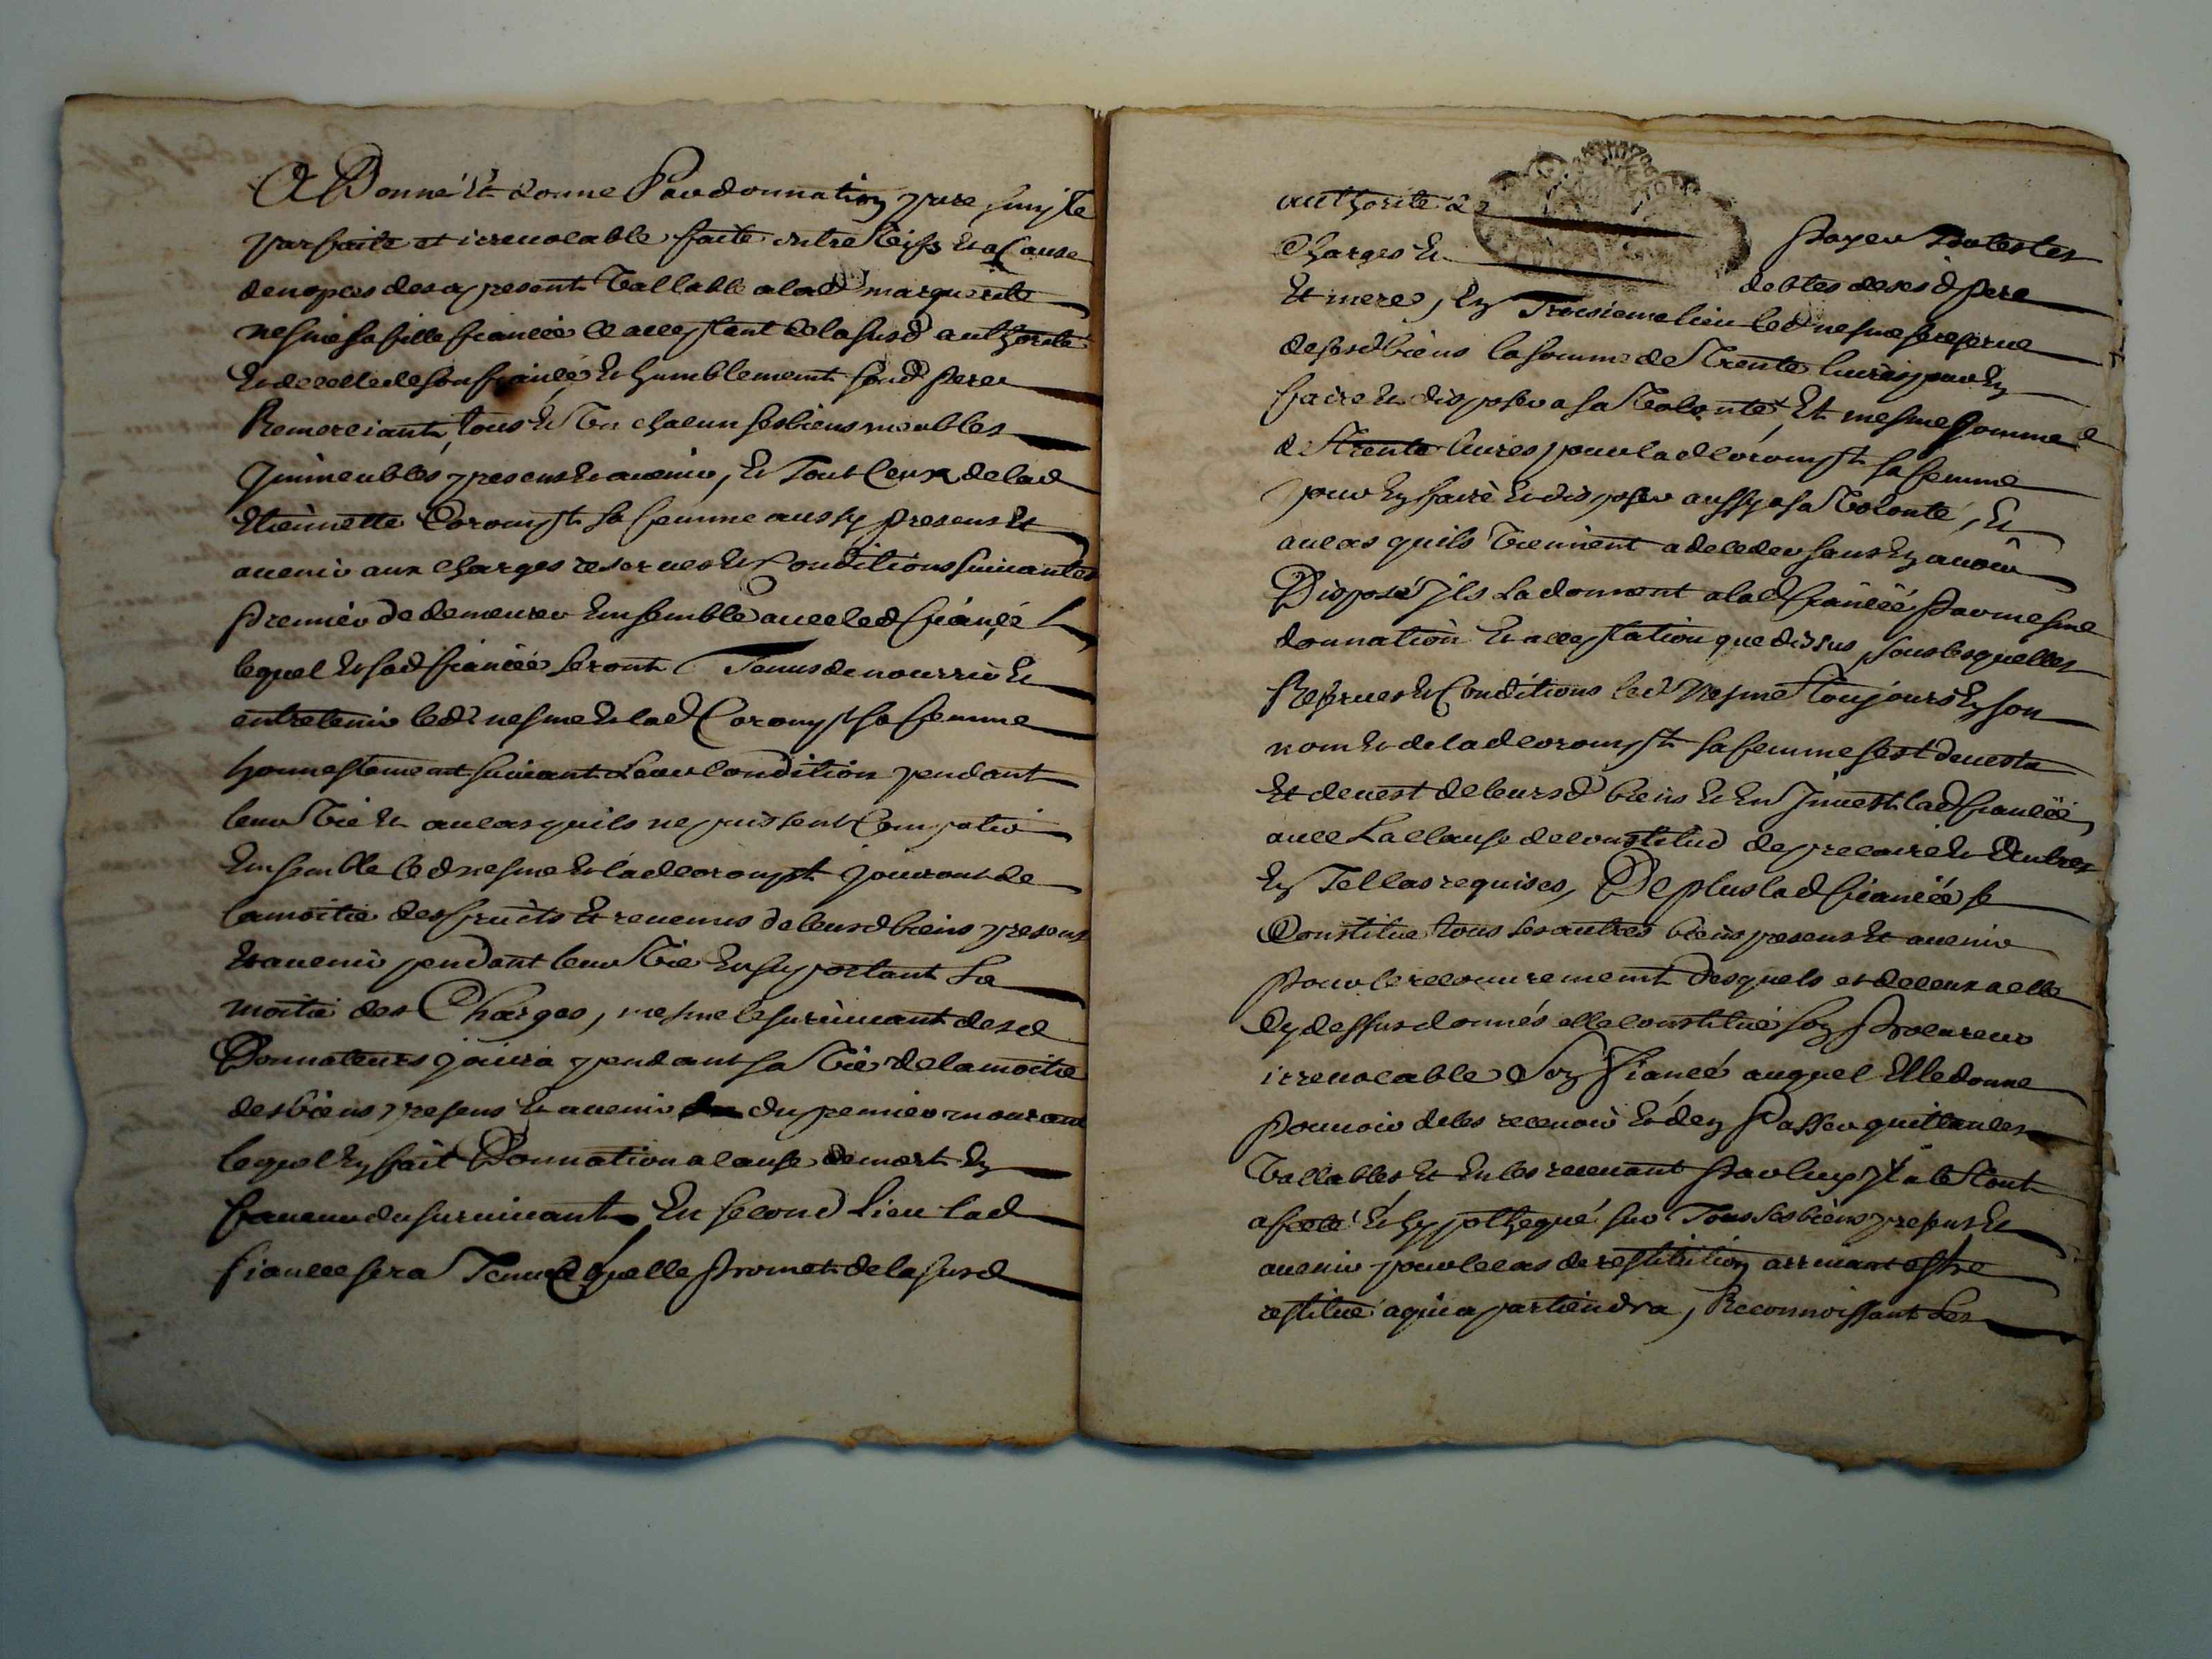 A Donné Et donne Par donnation pure simple
parfaite et irrevocable faite entre vifs Et a Cause
de nopces des a present Vallable a lad marguerite
nesme sa fille fiancée ce acceptant de la susd authorité
Et de celle de son fiancé Et humblement sond pere
Remerciant, tous Et Un chacun ses biens meubles
Immeubles presens Et avenir, Et Tout Ceux de lad
Etiennette Corompt sa femme aussy presens Et
avenir aux charges reserves Et Conditions suivantes
premier de demeurer Ensemble avec led fiancé
lequel Et sad fiancée seront Tenus de nourrir Et
entretenir led nesme Et lad Corompt sa femme
honnestement suivant Leur Condition pendant
leur Vie Et au cas quils ne puissent Compatir
Ensemble led nesme Et lad corompt jouiront de
la moitié des fruits Et revenus de leursd biens presens
Et avenir pendant leur Vie En suportant La
moitié des Charges, mesme le survivant desd
Donnateurs jouira pendant sa Vie de la moitié
des biens presens Et avenir du premier mourant
lequel En fait Donnation a cause de mort En
faveur du survivant En second Lieu lad
fiancée sera Tenue quelle promet de la susd
authorité de payer Toutes les
Charges Et debtes de sesd pere
Et mere, En Troisieme lieu led nesme se reserve
de sesd biens la somme de Trente livres pour En
faire Et disposer a sa Volonté, Et mesme somme
de Trente livres pour lad corompt sa femme
pour En faire Et disposer aussy a sa Volonté, Et
au cas quils Viennent a deceder sans En avoir
Disposé Ils La donnent a lad fiancée par mesme
donnation Et acceptation que dessus, sous lesquelles
Reserves Et Conditions led Nesme Toujours En son
nom Et de lad corompt sa femme sest devestu
Et devest de leursd biens Et En Invest lad fiancée
avec La clause de constitud de precaire Et autres
En Tel cas requises, De plus lad fiancée se
Constitue tous ses autres biens presens Et avenir
pour le recouvrement desquels et de ceux a elle
Cy dessus donnés elle constitue son procureur
irrevocable Son fiancé auquel Elle donne
pouvoir de les recevoir Et den Passer quittances
Vallables Et En les recevant par luy Il a le Tout
afecté Et hypothequé sur Tous ses biens presens Et
avenir pour le cas de restitution arrivant estre
restitué a qui apartiendra, Reconnoissant Les